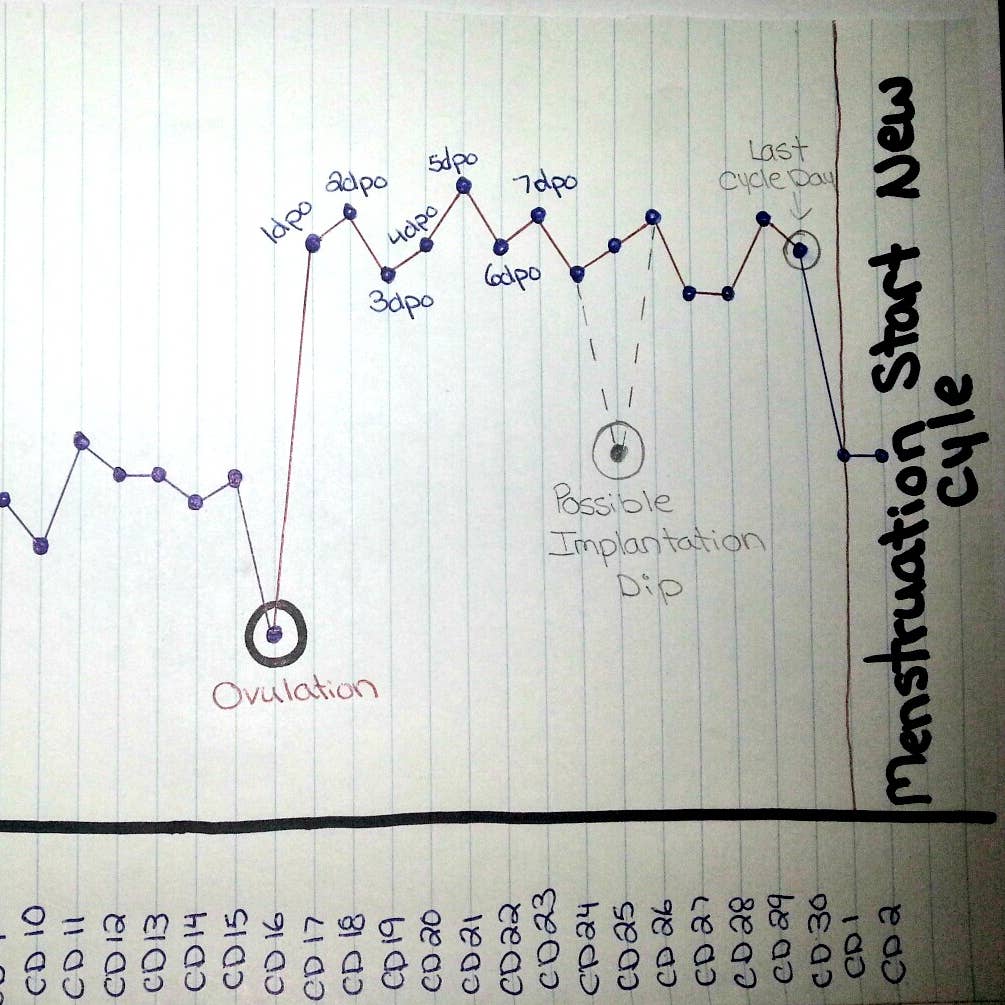 Last
Cycle Day
5dpo
2dpo
7dpo
1dpo
4dpo
6dpo
3dpo
Possible
Implantation
Dip
Ovulation
Menstruation Start New
Cyle
CD 10
CD 11
CD 12
CD 13
CD 14
CD 15
CD 16
CD 17
CD 18
CD 19
CD 20
CD 21
CD 22
CD 23
CD 24
CD 25
CD 26
CD 27
CD 28
CD 29
CD 30
CD 1
CD 2